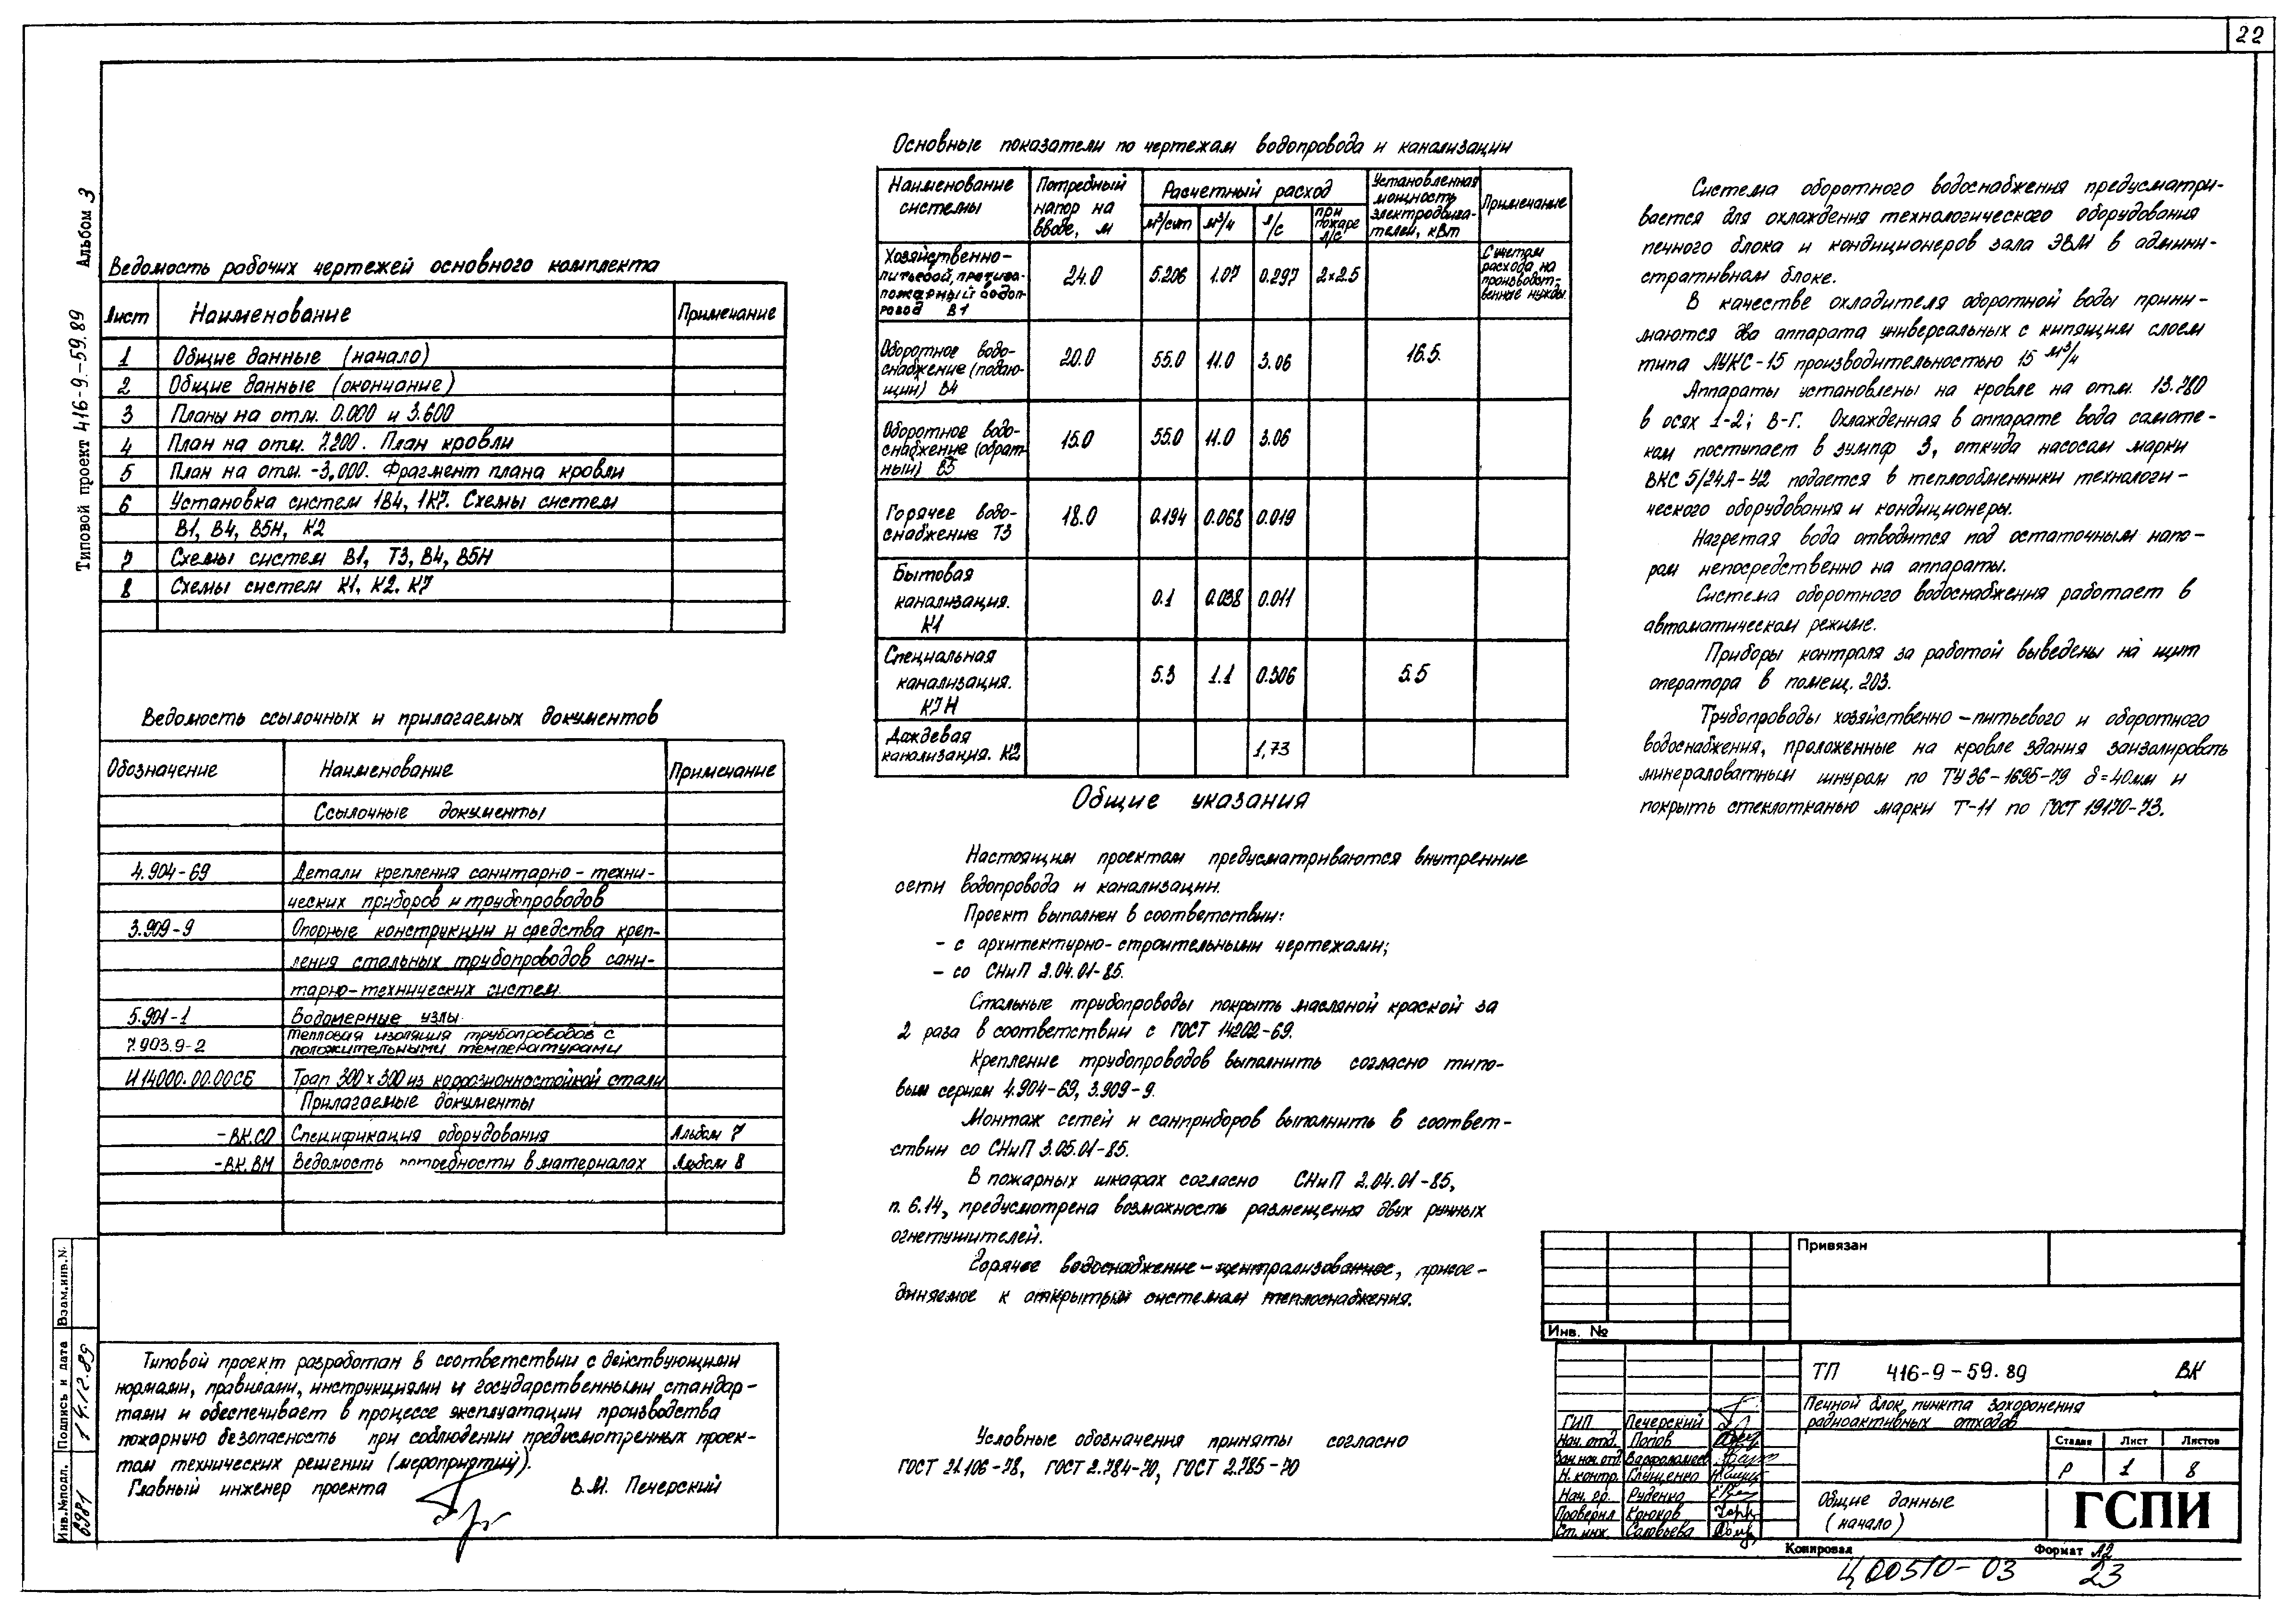 22
Альбом 3
Типовой проект 416-9-59.89
Ведомость рабочих чертежей основного комплекта
Лист Наименование Примечание
1 Общие данные (начало)
2 Общие данные (окончание)
3 Планы на отм. 0.000 и 3.600
4 План на отм. 7.200. План кровли
5 План на отм. -3,000. Фрагмент плана кровли
6 Установка систем 1В4, 1К7. Схемы систем
В1, В4, В5Н, К2
7 Схемы систем В1, Т3, В4, В5Н
8 Схемы систем К1, К2, К7
Ведомость ссылочных и прилагаемых документов
Обозначение Наименование Примечание
Ссылочные документы
4.904-69 Детали крепления санитарно-техни-
ческих приборов и трубопроводов
3.909-9 Опорные конструкции и средства креп-
ления стальных трубопроводов сани-
тарно-технических систем.
5.901-1 Водомерные узлы.
7.903.9-2 Тепловая изоляция трубопроводов с
положительными температурами
И14000.00.00СБ Трап 300х300 из коррозионностойкой стали
Прилагаемые документы
-ВК.СО Спецификация оборудования Альбом 7
-ВК.ВМ Ведомость потребности в материалах Альбом 8
Типовой проект разработан в соответствии с действующими
нормами, правилами, инструкциями и государственными стандар-
тами и обеспечивает в процессе эксплуатации производства
пожарную безопасность при соблюдении предусмотренных проек-
том технических решений (мероприятий).
Главный инженер проекта В.М. Печерский
Взам.инв.N.
Подпись и дата 14.12.89
Инв.№подл. 6981
Основные показатели по чертежам водопровода и канализации
Наименование системы Потребный напор на вводе, м Расчетный расход Установленная мощность электродвига-телей, кВт Примечание
м³/сут м³/ч л/с при пожаре л/с
Хозяйственно-питьевой, противо-пожарный водоп-ровод В1 24.0 5.206 1.07 0.297 2×2.5 С учетом расхода на производст-венные нужды.
Оборотное водо-снабжение (подаю-щий) В4 20.0 55.0 11.0 3.06 16.5.
Оборотное водо-снабжение (обрат-ный) В5 15.0 55.0 11.0 3.06
Горячее водо-снабжение Т3 18.0 0.194 0.068 0.019
Бытовая канализация. К1 0.1 0.038 0.011
Специальная канализация. К7Н 5.3 1.1 0.306 5.5
Дождевая канализация. К2 1,73
Общие указания
Настоящим проектом предусматриваются внутренние
сети водопровода и канализации.
Проект выполнен в соответствии:
- с архитектурно-строительными чертежами;
- со СНиП 2.04.01-85.
Стальные трубопроводы покрыть масляной краской за
2 раза в соответствии с ГОСТ 14202-69.
Крепление трубопроводов выполнить согласно типо-
вым сериям 4.904-69, 3.909-9.
Монтаж сетей и санприборов выполнить в соответ-
ствии со СНиП 3.05.01-85.
В пожарных шкафах согласно СНиП 2.04.01-85,
п. 6.14, предусмотрена возможность размещения двух ручных
огнетушителей.
Горячее водоснабжение - централизованное, присое-
диняемое к открытым системам теплоснабжения.
Условные обозначения приняты согласно
ГОСТ 21.106-78, ГОСТ 2.784-70, ГОСТ 2.785-70
Система оборотного водоснабжения предусматри-
вается для охлаждения технологического оборудования
печного блока и кондиционеров зала ЭВМ в админи-
стративном блоке.
В качестве охладителя оборотной воды прини-
маются два аппарата универсальных с кипящим слоем
типа АУКС-15 производительностью 15 м³/ч
Аппараты установлены на кровле на отм. 13.780
в осях 1-2; В-Г. Охлажденная в аппарате вода самоте-
ком поступает в зумпф 3, откуда насосом марки
ВКС 5/24А-У2 подается в теплообменники технологи-
ческого оборудования и кондиционеры.
Нагретая вода отводится под остаточным напо-
ром непосредственно на аппараты.
Система оборотного водоснабжения работает в
автоматическом режиме.
Приборы контроля за работой выведены на щит
оператора в помещ. 203.
Трубопроводы хозяйственно-питьевого и оборотного
водоснабжения, проложенные на кровле здания заизолировать
минераловатным шнуром по ТУ 36-1695-79 δ=40мм и
покрыть стеклотканью марки Т-11 по ГОСТ 19170-73.
Привязан
Инв. №
ТП 416-9-59.89 ВК
Печной блок пункта захоронения
радиоактивных отходов
ГИП Печерский
Нач. отд. Попов
Зам.нач.отд. Варфоломеев
Н. контр. Глущенко
Нач. гр. Руденко
Проверил Крюков
Ст. инж. Соловьева
Стадия Лист Листов
Р 1 8
Общие данные
(начало)
ГСПИ
Копировал Формат А2
Ц00510-03 23